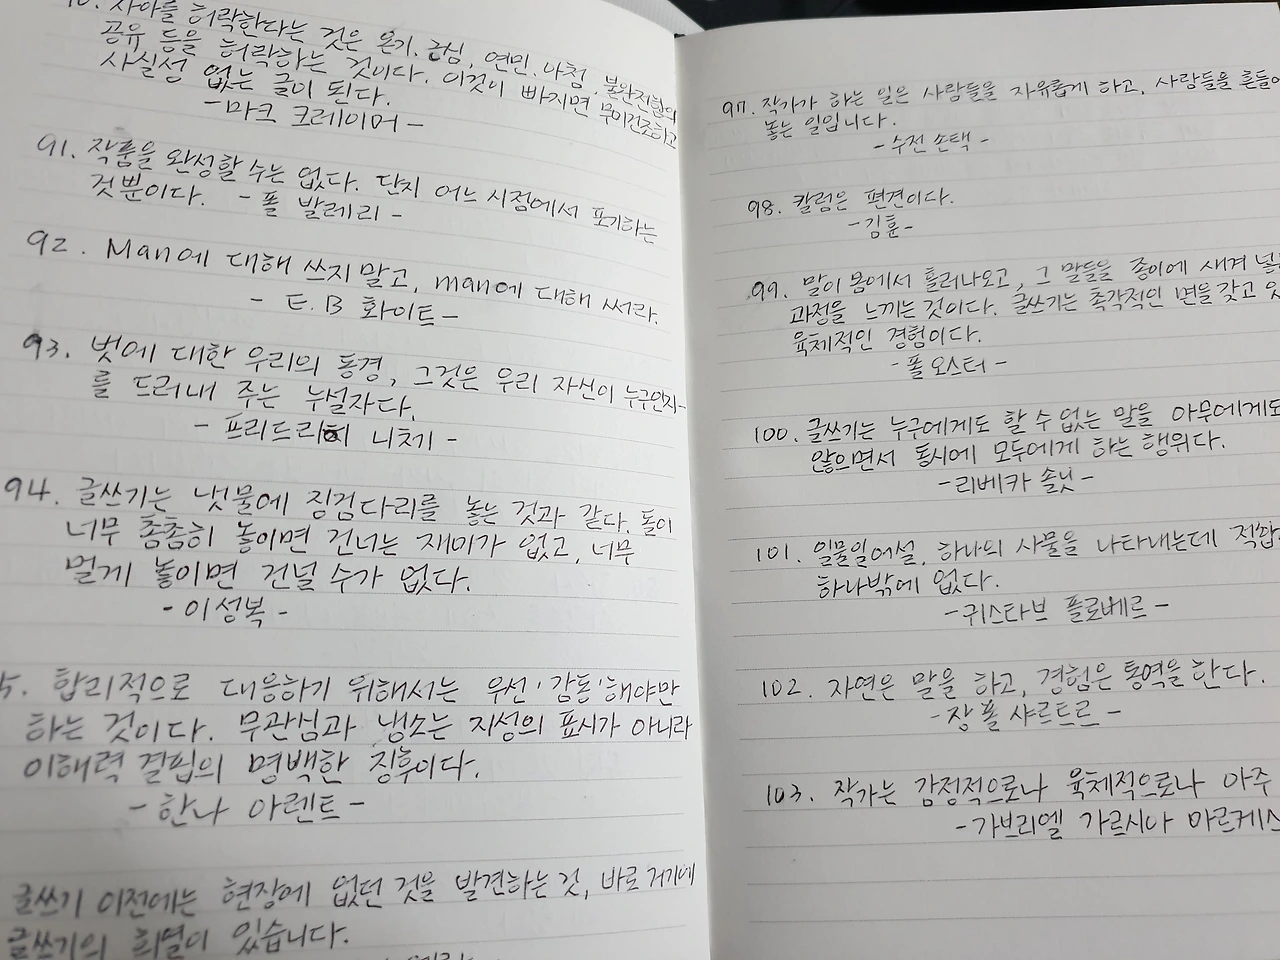 자아를 허락한다는 것은 온기, 근심, 연민, 아첨, 불완전함의
공유 등을 허락하는 것이다. 이것이 빠지면 무미건조하고
사실성 없는 글이 된다.
-마크 크레이머-
91. 작품을 완성할 수는 없다. 단지 어느 시점에서 포기하는
것뿐이다. - 폴 발레리 -
92. Man에 대해 쓰지 말고, man에 대해 써라.
- E.B 화이트 -
93. 벗에 대한 우리의 동경, 그것은 우리 자신이 누구인지
를 드러내 주는 누설자다.
- 프리드리히 니체기 -
94. 글쓰기는 냇물에 징검다리를 놓는 것과 같다. 돌이
너무 촘촘히 놓이면 건너는 재미가 없고, 너무
멀게 놓이면 건널 수가 없다.
- 이성복 -
5. 합리적으로 대응하기 위해서는 우선 '감동'해야만
하는 것이다. 무관심과 냉소는 지성의 표시가 아니라
이해력 결핍의 명백한 징후이다.
- 한나 아렌트 -
글쓰기 이전에는 현장에 없던 것을 발견하는 것, 바로 거기에
글쓰기의 희열이 있습니다.
97. 작가가 하는 일은 사람들을 자유롭게 하고, 사람들을 흔들어
놓는 일입니다.
- 수전 손택 -
98. 칼럼은 편견이다.
- 김훈 -
99. 말이 몸에서 흘러나오고, 그 말들을 종이에 새겨 넣는
과정을 느끼는 것이다. 글쓰기는 촉각적인 면을 갖고 있
육체적인 경험이다.
- 폴 오스터 -
100. 글쓰기는 누구에게도 할 수 없는 말을 아무에게도
않으면서 동시에 모두에게 하는 행위다.
- 리베카 솔닛 -
101. 일물일어설, 하나의 사물을 나타내는데 적합
하나밖에 없다.
- 귀스타브 플로베르 -
102. 자연은 말을 하고, 경험은 통역을 한다.
- 장 폴 샤르트르 -
103. 작가는 감정적으로나 육체적으로나 아주
- 가브리엘 가르시아 마르케스